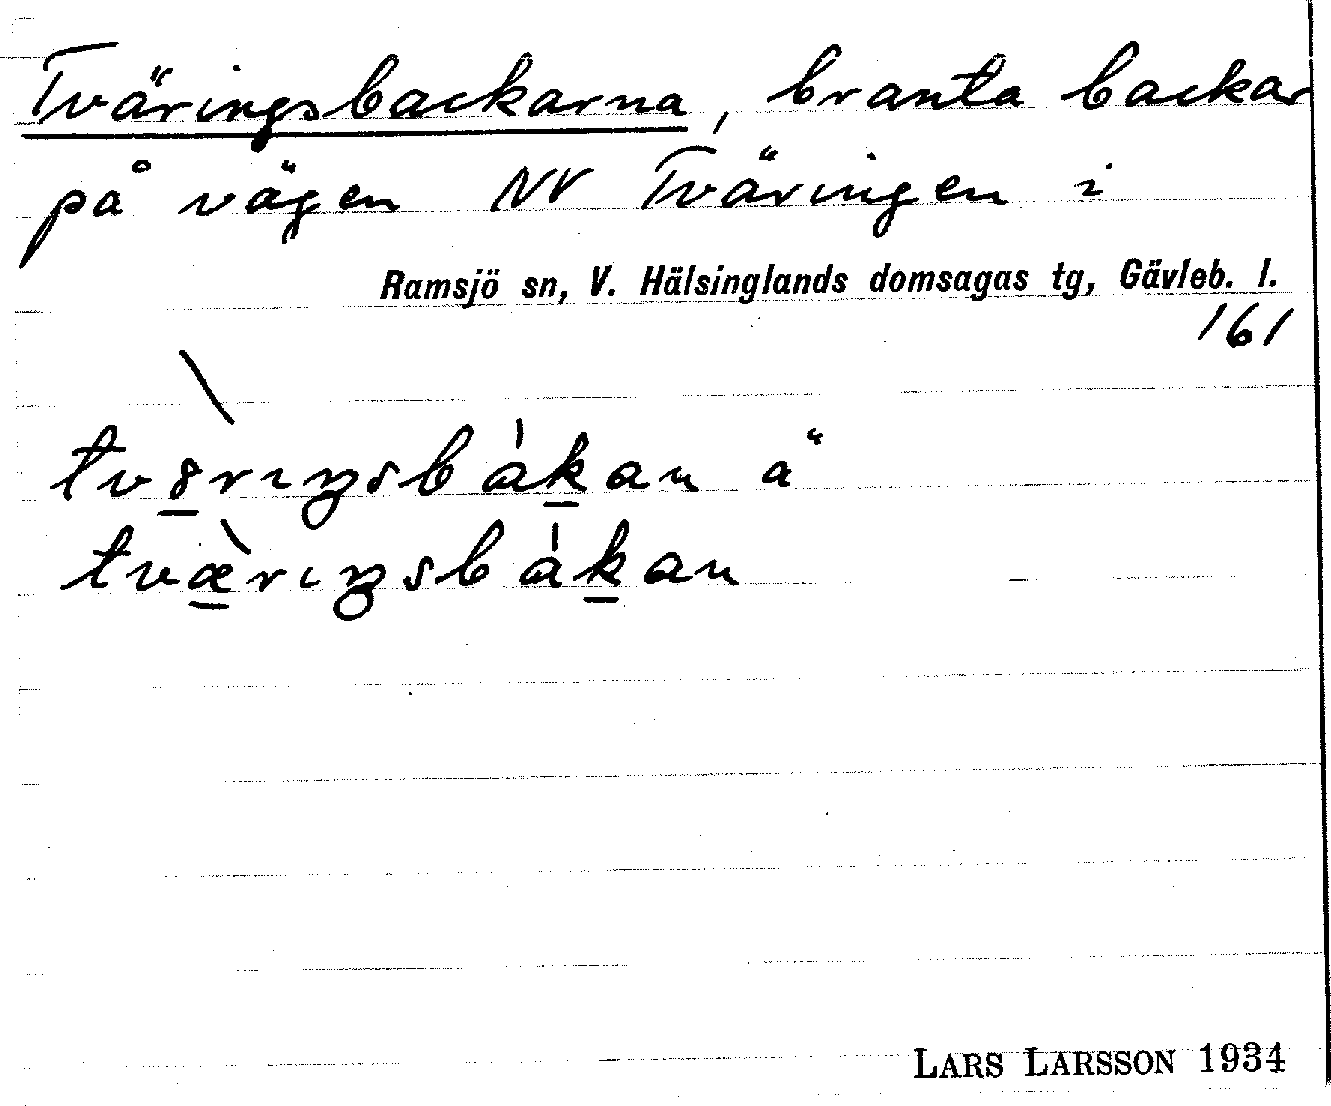 Tväringsbackarna, branta backar
på vägen NV Tväringen i
Ramsjö sn, V. Hälsinglands domsagas tg, Gävleb. l.
161
tv8̲̀rıŋsbák̲an ä
tvæ̲̀rıŋsbák̲an
LARS LARSSON 1934